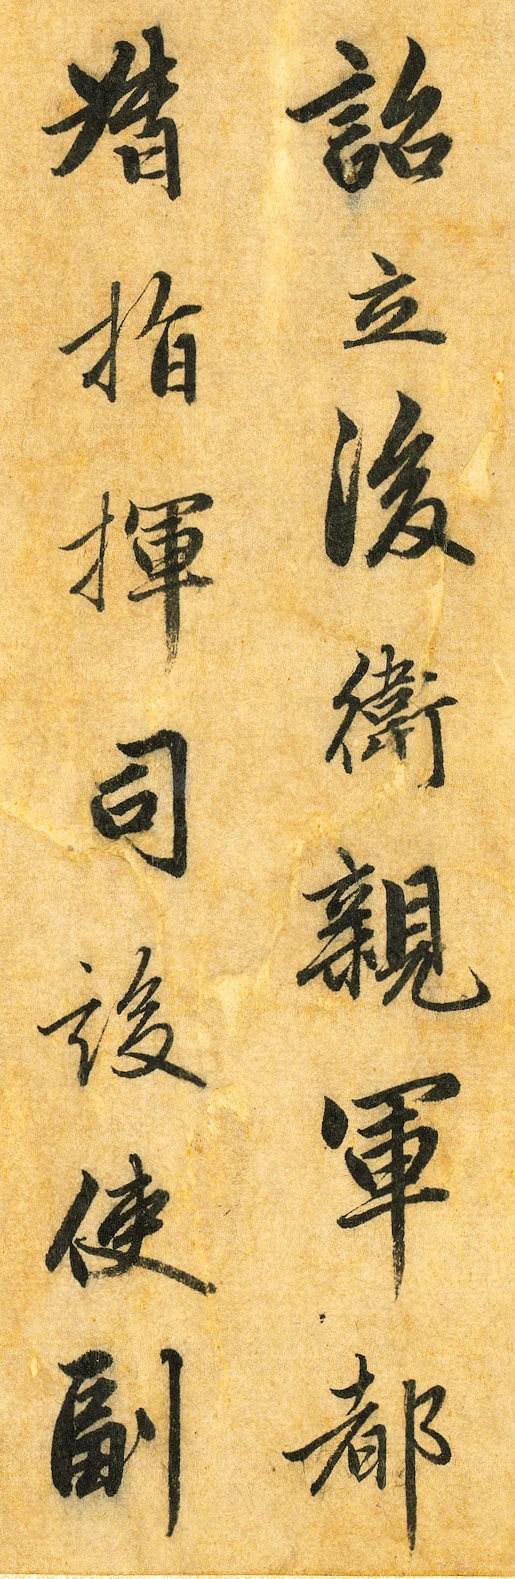 詔立後衛親軍都
指揮司設使副